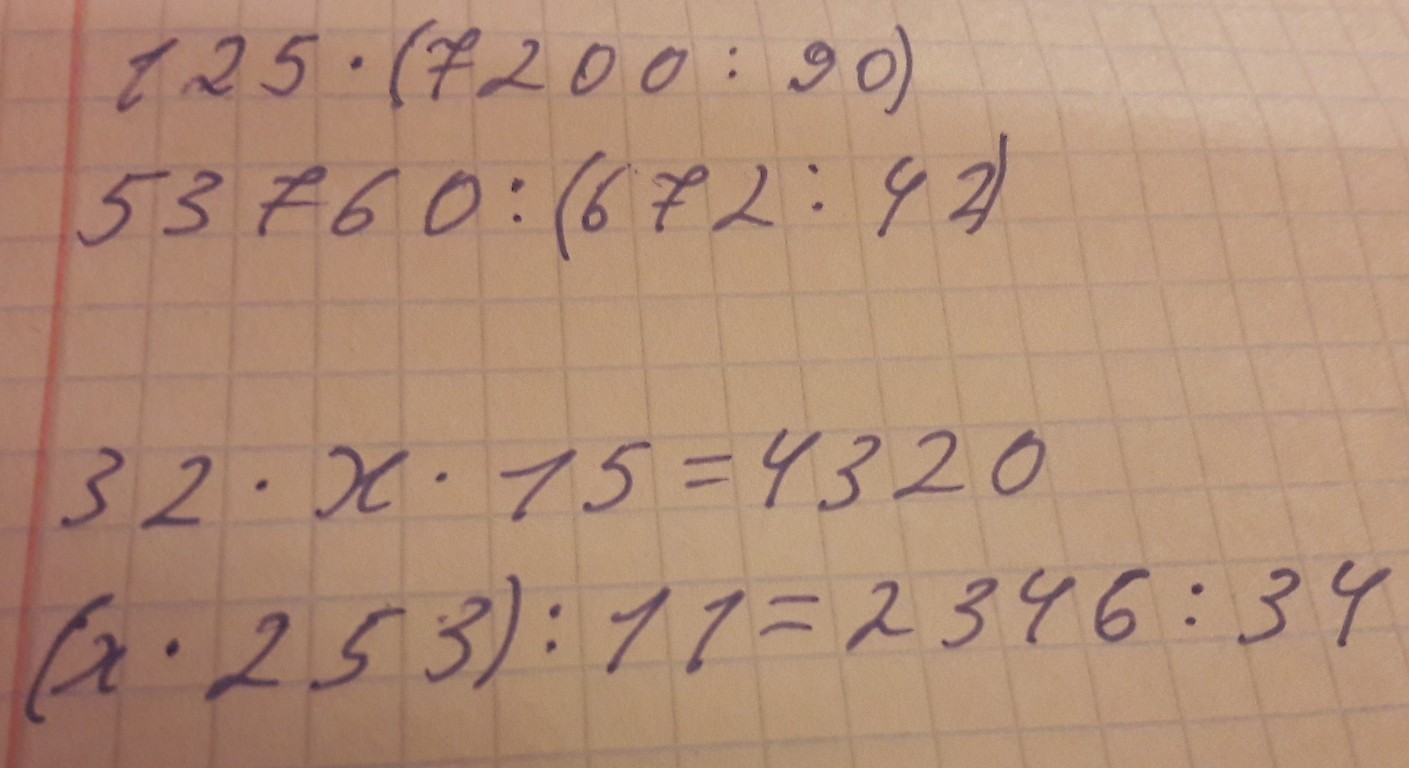 125·(7200:90)
53760:(672:42)
32·x·15=4320
(x·253):11=2346:34